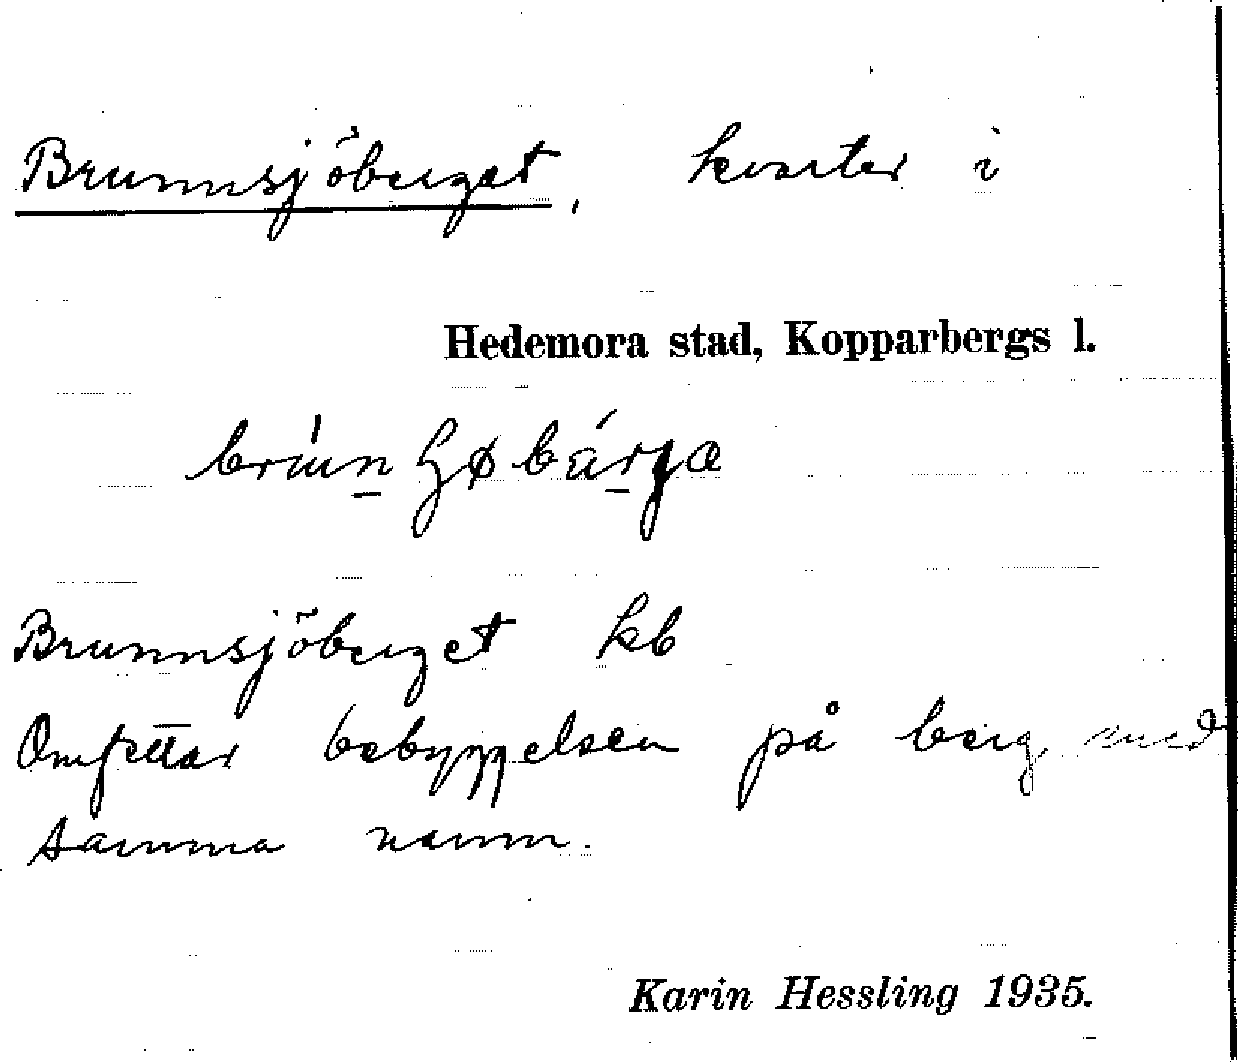 Brunnsjöberget, kvarter i
Hedemora stad, Kopparbergs l.
Brunnsjöberget kb
Omfattar bebyggelsen på berg med
samma namn.
Karin Hessling 1935.